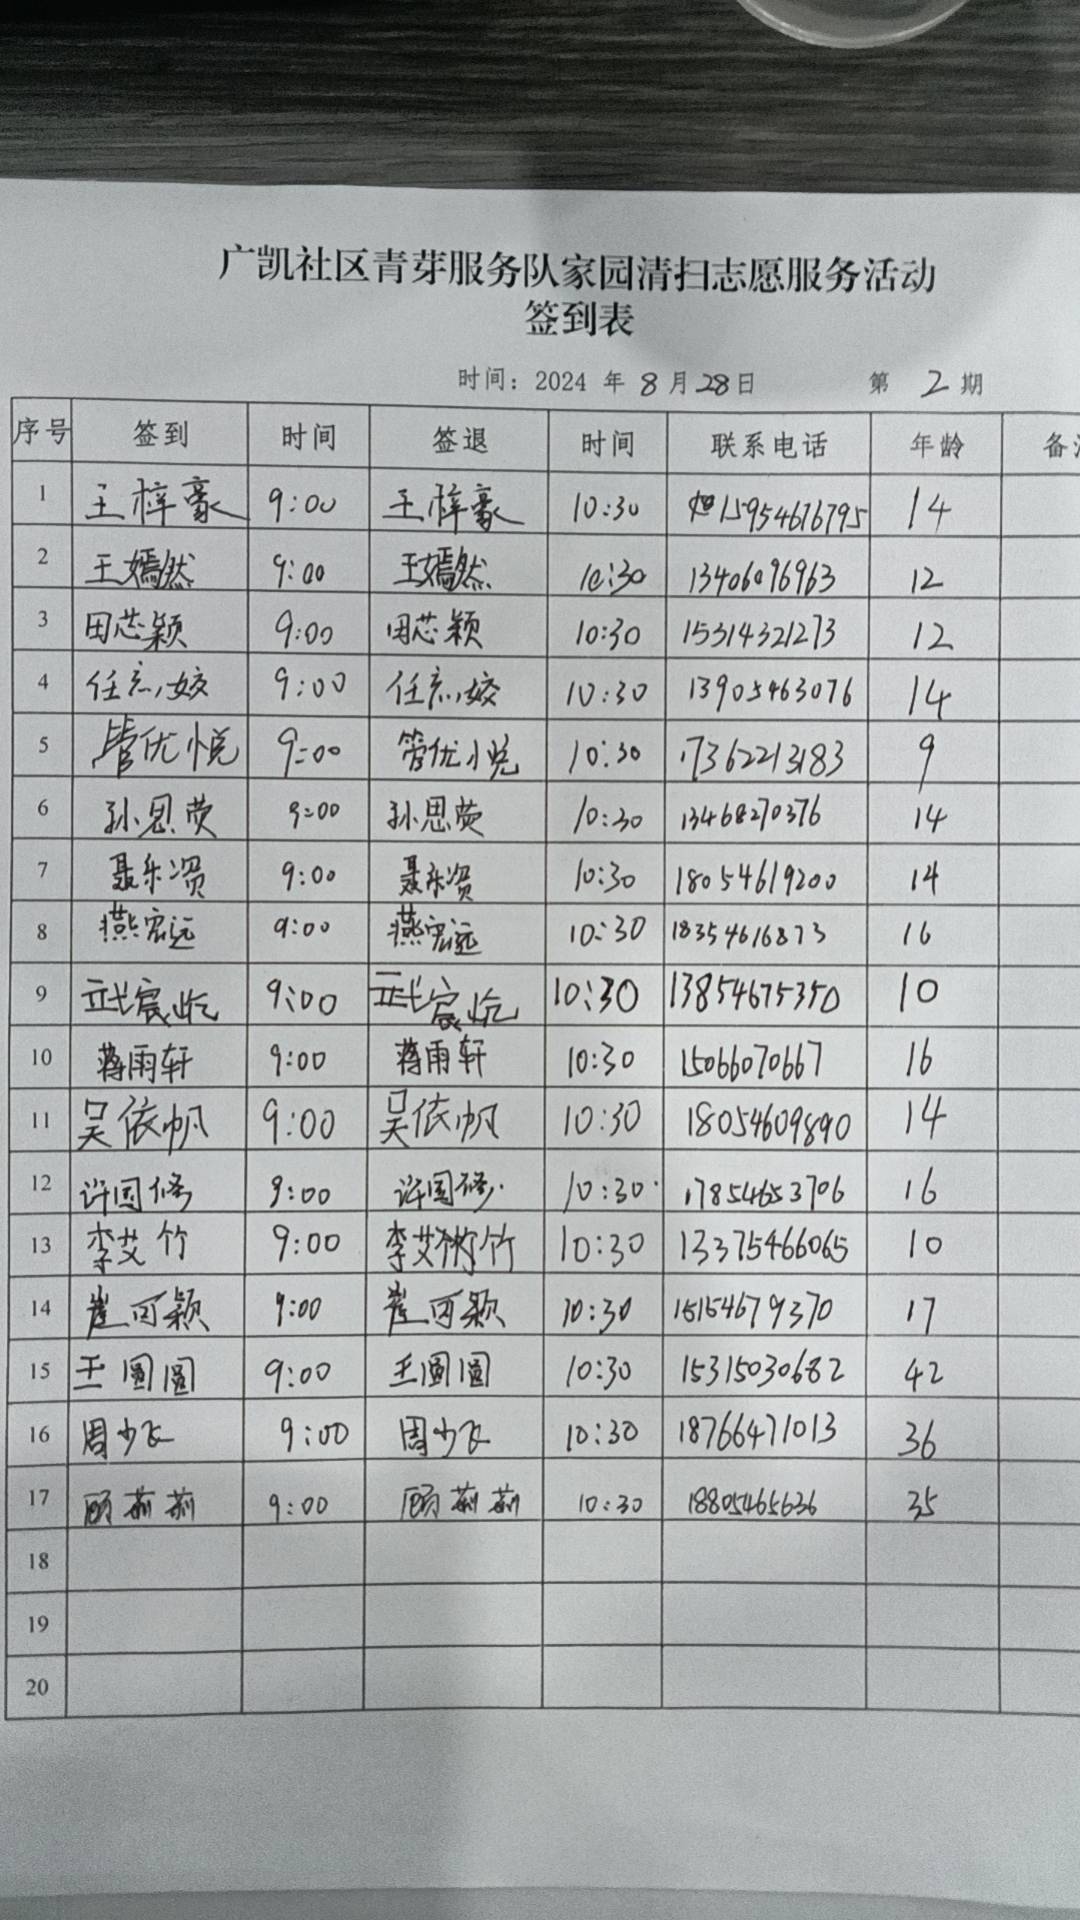 广凯社区青芽服务队家园清扫志愿服务活动
签到表
时间：2024 年 8 月 28 日 第 2 期
序号 签到 时间 签退 时间 联系电话 年龄
1 王梓豪 9:00 王梓豪 10:30 15954676795 14
2 王嫣然 9:00 王嫣然 10:30 13406096963 12
3 田芯颖 9:00 田芯颖 10:30 15314321273 12
4 任 姣 9:00 任 姣 10:30 13905463076 14
5 管优悦 9:00 管优悦 10:30 17362213183 9
6 孙思荧 9:00 孙思荧 10:30 13468270376 14
7 聂乐 9:00 聂乐 10:30 18054619200 14
8 燕宏远 9:00 燕宏远 10:30 18354616873 16
9 宸屹 9:00 宸屹 10:30 13854675350 10
10 蒋雨轩 9:00 蒋雨轩 10:30 15066070667 16
11 吴依帆 9:00 吴依帆 10:30 18054609890 14
12 许国修 9:00 许国修 10:30 17854653706 16
13 李艾竹 9:00 李艾竹 10:30 13375466065 10
14 崔可颖 9:00 崔可颖 10:30 15154679370 17
15 王圆圆 9:00 王圆圆 10:30 15315030682 42
16 周少飞 9:00 周少飞 10:30 18766471013 36
17 顾莉莉 9:00 顾莉莉 10:30 18805465636 35
18
19
20